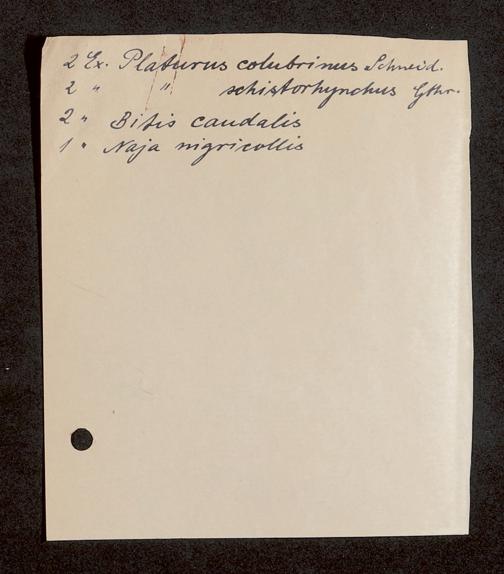 2 Ex. Platurus colubrinus Schneid.
2 " " schistorhynchus Gthr.
2 " Bitis caudalis
1 " Naja nigricollis